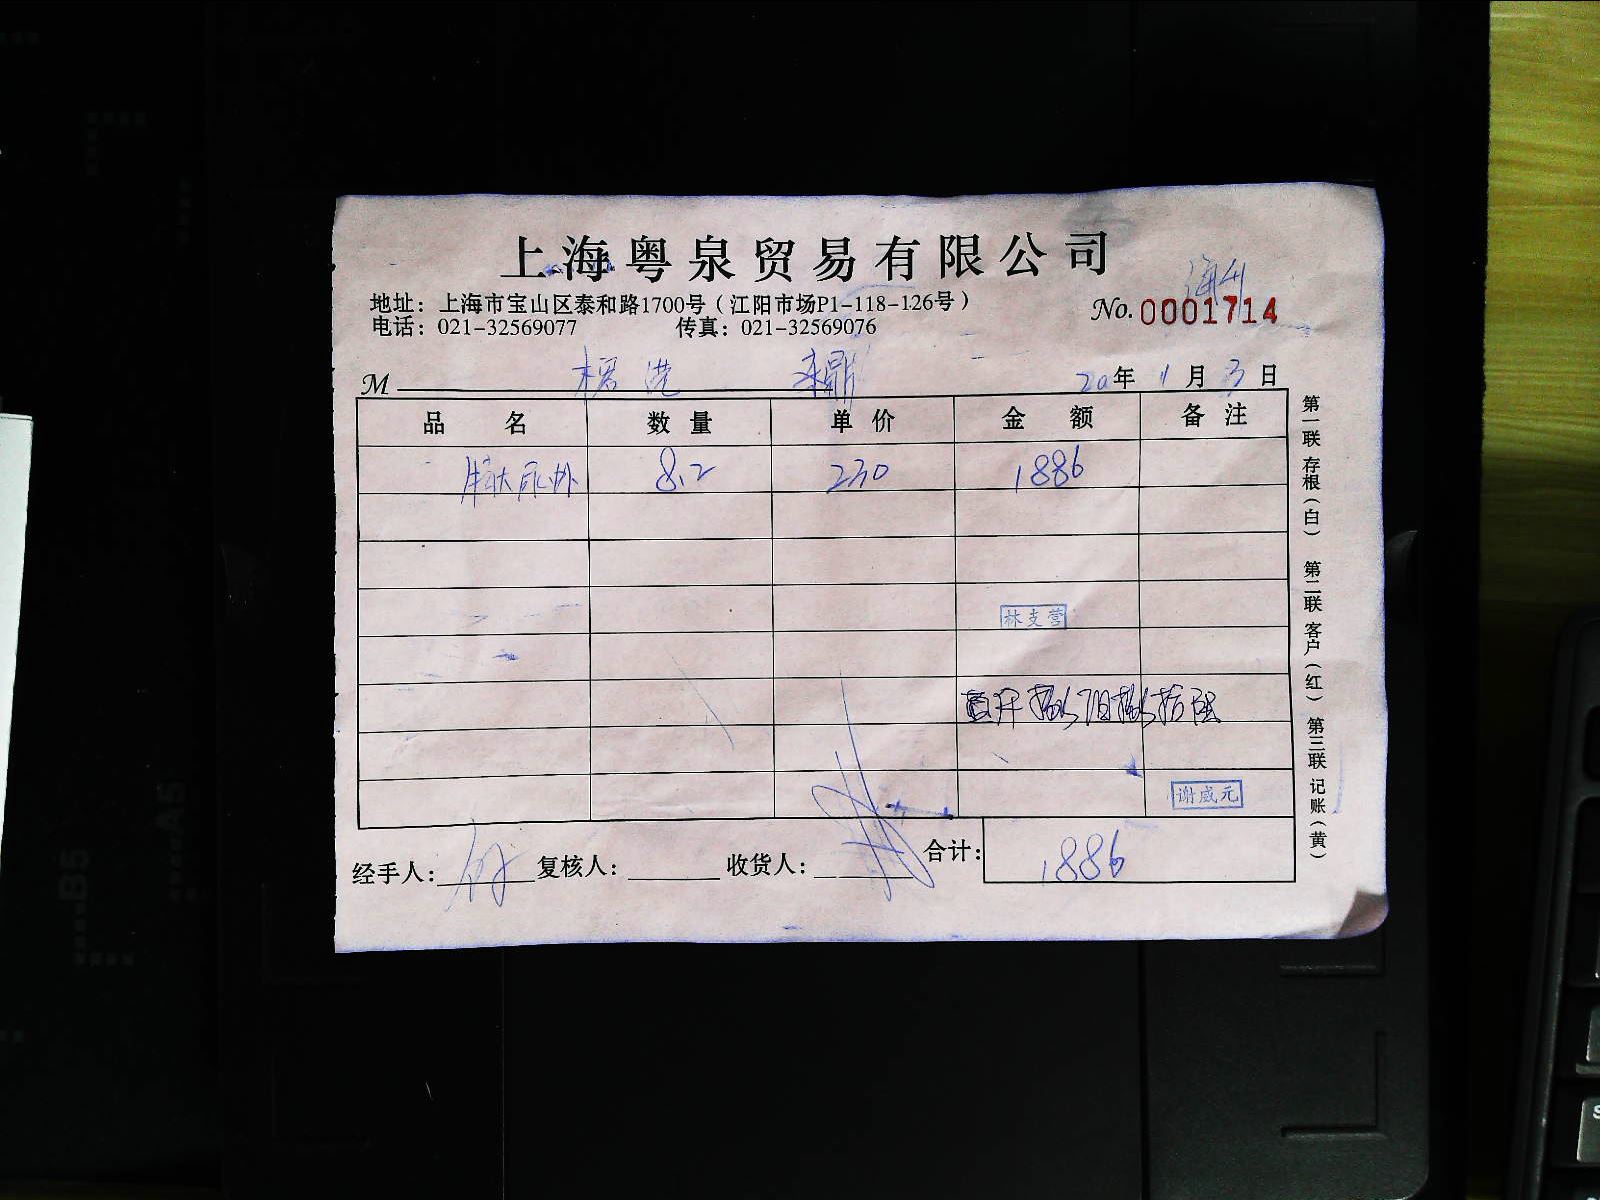 上海粤泉贸易有限公司
地址：上海市宝山区泰和路1700号（江阳市场P1-118-126号）
No. 0001714
电话：021-32569077 传真：021-32569076
M 20年 11月 3日
品名 数量 单价 金额 备注
8.2 230 1886
林支营
谢威元
经手人： 复核人： 收货人： 合计： 1886
第一联 存根（白） 第二联 客户（红） 第三联 记账（黄）
B5
A5